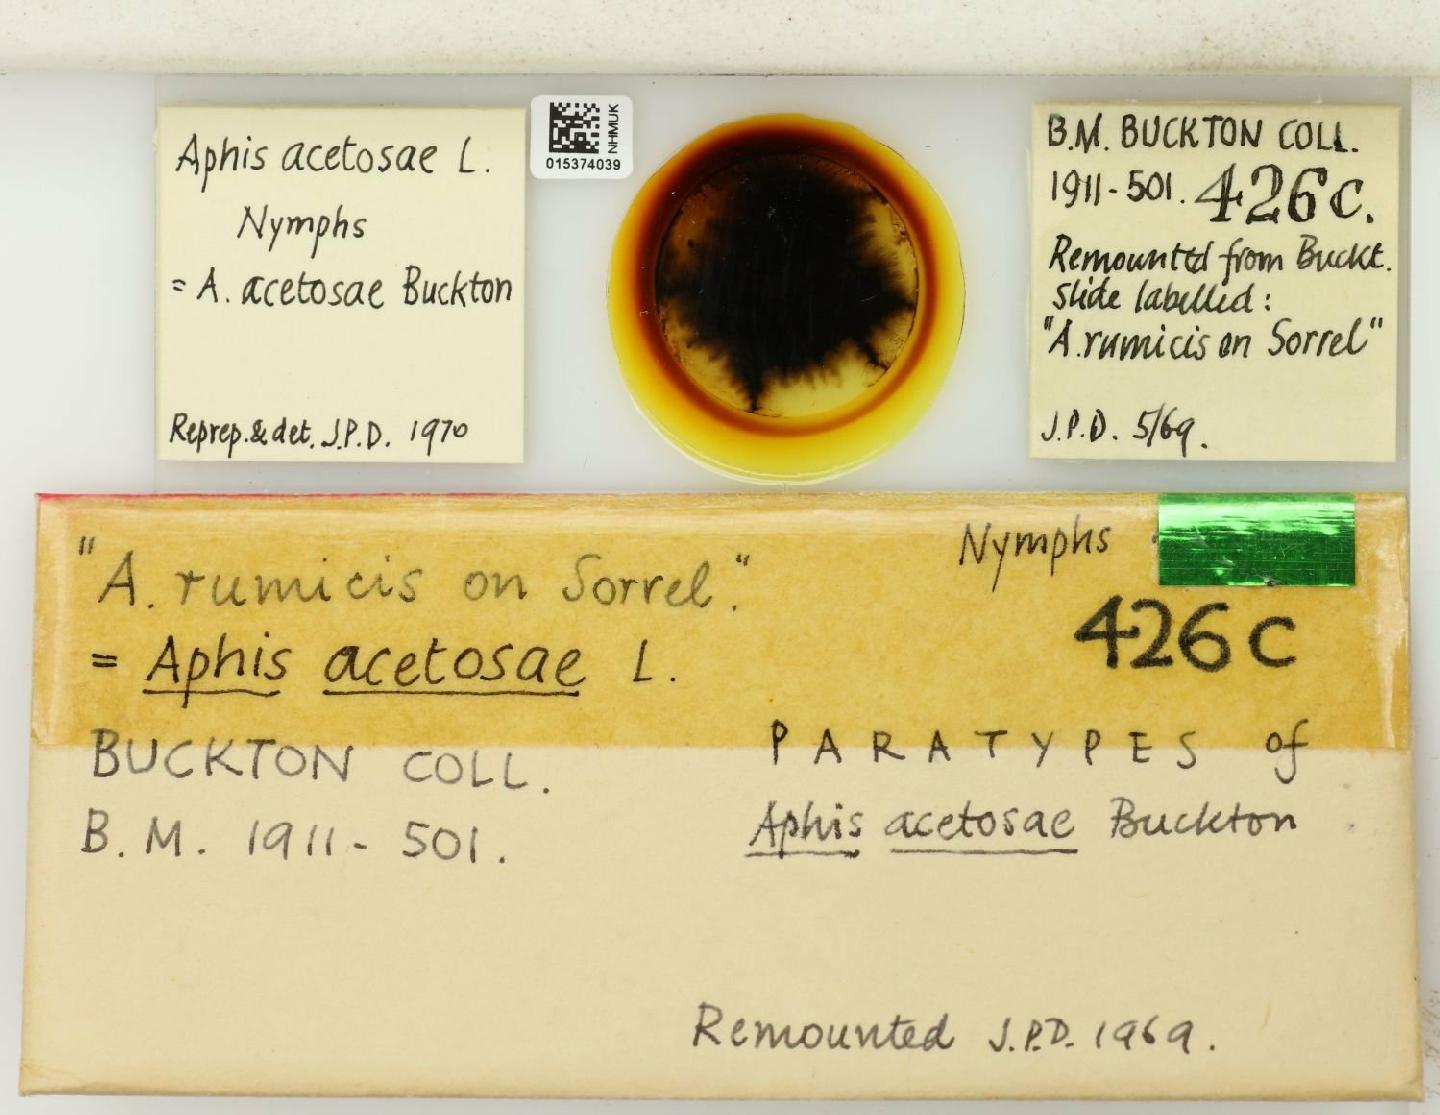 Aphis acetosae L.
Nymphs
= A. acetosae Buckton
Reprep. & det. J.P.D. 1970
NHMUK
015374039
B.M. BUCKTON COLL.
1911-501. 426c.
Remounted from Buckt.
slide labelled:
"A. rumicis on Sorrel"
J.P.D. 5/69.
Nymphs
"A. rumicis on Sorrel".
426 c
= Aphis acetosae L.
BUCKTON COLL.
B. M. 1911-501.
PARATYPES of
Aphis acetosae Buckton
Remounted J.P.D. 1969.